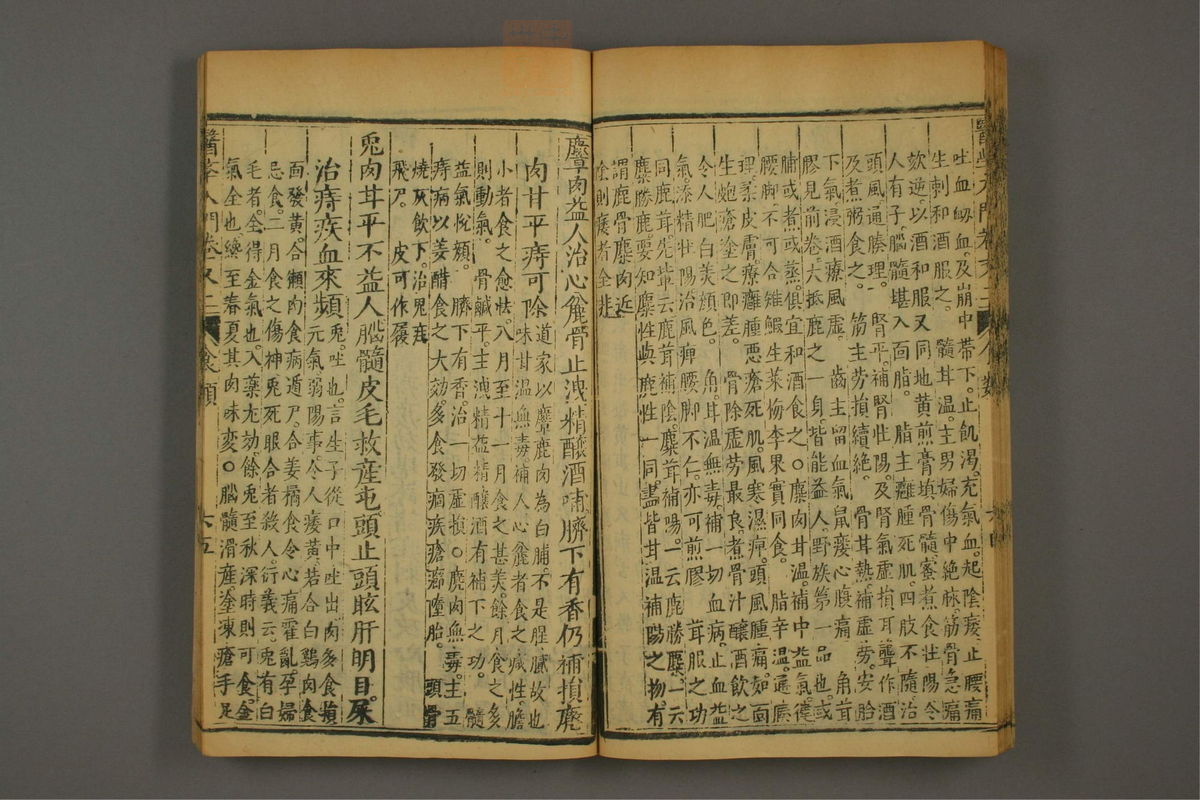 吐血衂血及崩中帶下止飢渴充氣血起陰痿止腰痛
生刺和酒服之。髓甘温主男婦傷中絶脉筋骨急痛
欬逆以酒和服又同地黃煎膏填骨髓蜜煮食壯陽令
人有子。腦髓堪入面脂。脂主癰腫死肌四肢不隨治
頭風通腠理。腎平補腎壯陽及腎氣虛損耳聾作酒
及煮粥食之。筋主劳損續絶。骨甘熱補虛劳安胎
下氣浸酒療風虛。齒主留血氣鼠瘻心腹痛。角茸
膠見前卷大抵鹿之一身皆能益人野族第一品也或
脯或煮或蒸俱宜和酒食之○麋肉甘温補中益氣
腰脚不可合雉鰕生菜梅李果實同食。脂辛温通腠
理柔皮膚療癰腫惡瘡死肌風寒濕痹頭風腫痛如面
生皰瘡塗之即差。骨除虛劳最良煮骨汁釀酒飲之
令人肥白美顔色。角甘温無毒補一切血病止血益
氣添精壯陽治風痹腰脚不仁亦可煎膠。茸服之功
同鹿茸先輩云鹿茸補陰麋茸補陽一云鹿勝麋一云
麋勝鹿要知麋性與鹿性一同盡皆甘温補陽之物有
謂鹿骨麋肉近
陰則痿者全非
麞肉益人治心麄骨止洩精釀酒啼臍下有香仍補損麂
肉甘平痔可除
道家以麞鹿肉為白脯不是腥膩故也
味甘温無毒補人心麄者食之減性膽
小者食之愈怯八月至十一月食之甚美餘月食之多
則動氣。骨鹹平主洩精益精釀酒有補下之功。髓
益氣悅顔。臍下有香治一切虛損○麂肉無毒主五
痔病以姜醋食之大効多食發痼疾瘡癤墮胎。頭骨
燒灰飲下治鬼疰
飛尸。皮可作履
兎肉甘平不益人腦髓皮毛救産屯頭止頭眩肝明目屎
治痔疾血來頻
兎吐也言生子從口中吐出肉多食損
元氣弱陽事令人痿黃若合白鷄肉食
面發黃合獺肉食病遁尸合姜橘食令心痛霍亂孕婦
忌食二月食之傷神兎死眼合者殺人衍義云兎有白
毛者全得金氣也入藥尤効餘兎至秋深時則可食金
氣全也纔至春夏其肉味変○腦髓滑産塗凍瘡手足
食類
六五